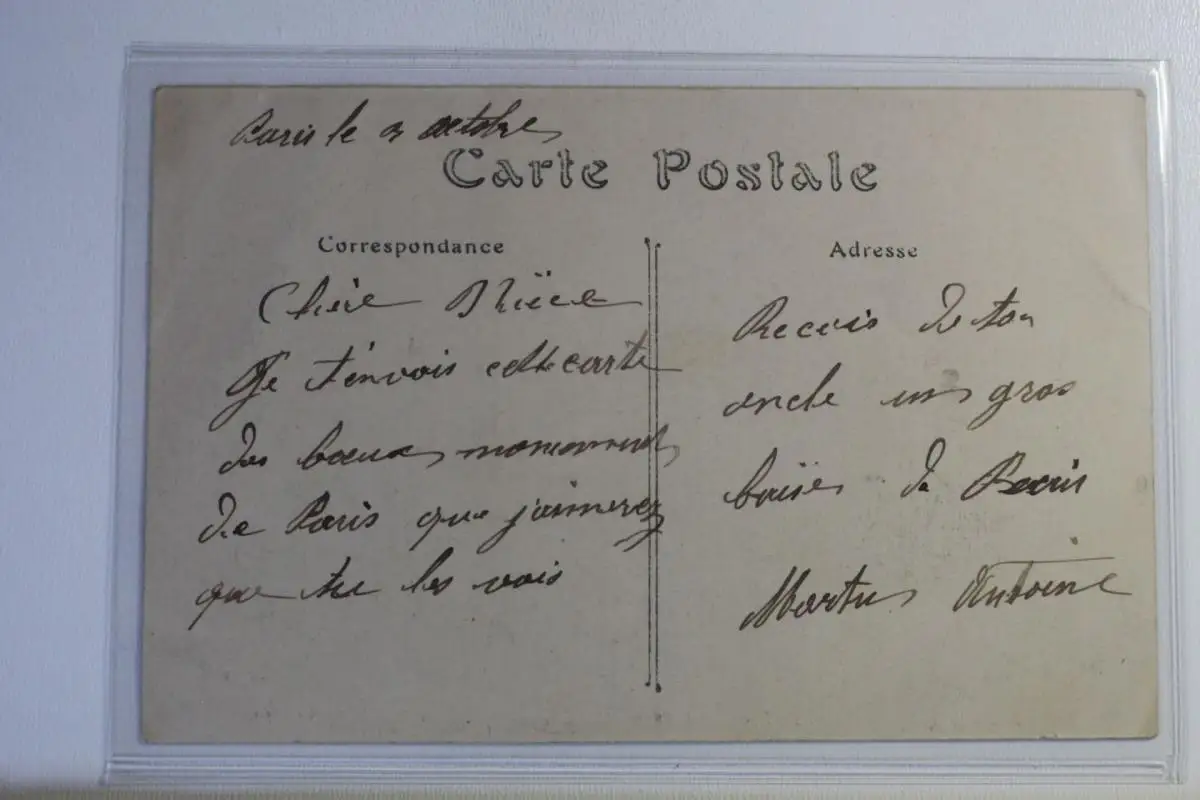 Paris le 3 octobre
Carte Postale
Correspondance
Adresse
Chère Niëce
Je t'envois cette carte
des boeux monuments
de Paris que j'aimerez
que tu les vois
Recevis de ton
oncle un gros
baisés de Paris
Antoine